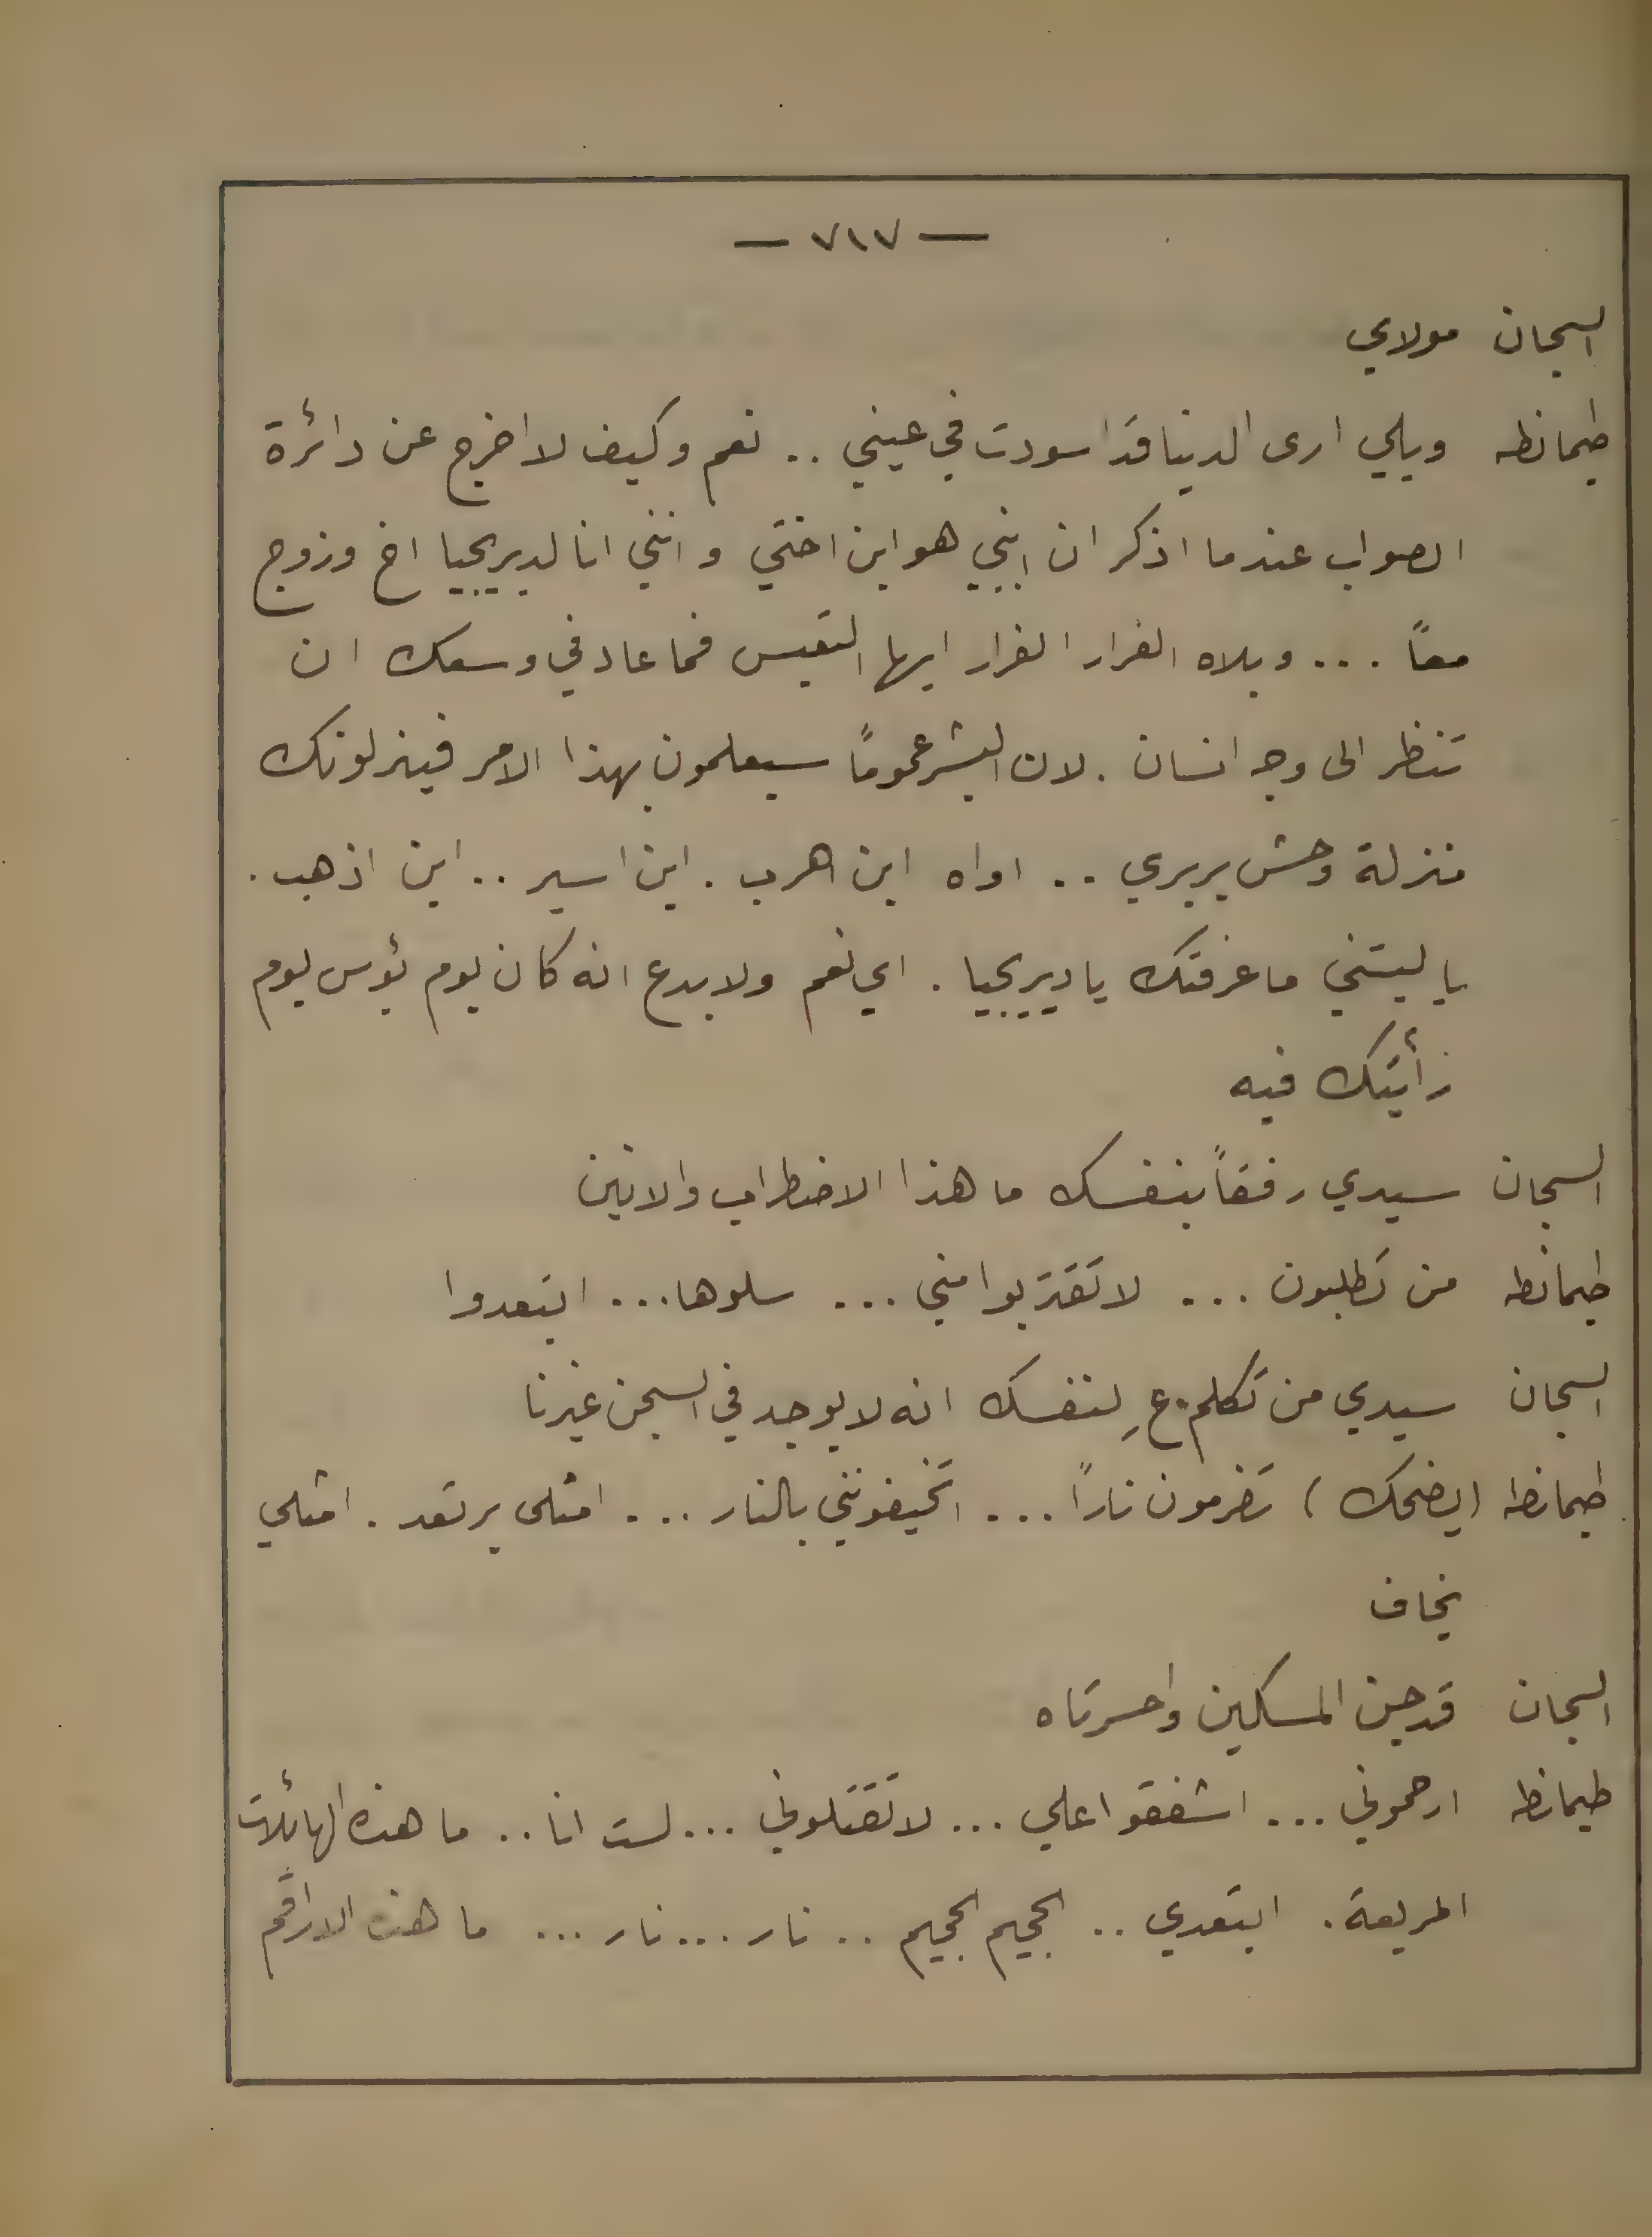 — ٧١٧ —
السجان مولاي
طيمانطه ويلي ارى الدنيا قد اسودت في عيني .. نعم وكيف لا اخرج عن دائرة
الصواب عندما اذكر ان ابني هو ابن اختي وانني انا لديريجيا اخ وزوج
معاً ... ويلاه الفرار الفرار ايها التعيس فما عاد في وسعك ان
تنظر الى وجه انسان . لان البشر عموماً سيعلمون بهذا الامر فينزلونك
منزلة وحش بربري .. اواه اين اهرب . اين اسير .. اين اذهب .
يا ليتني ما عرفتك يا ديريجيا . اي نعم ولا بدع انه كان يوم بؤس يوم
رأيتك فيه
السجان سيدي رفقاً بنفسك ما هذا الاضطراب والانين
طيمانطه من تطلبون ... لا تقتربوا مني ... سلوها ... ابتعدوا
السجان سيدي من تكلم عِ لنفسك انه لا يوجد في السجن غيرنا
طيمانطه (يضحك) تضرمون ناراً ... اتخيفونني بالنار ... امثلي يرتعد . امثلي
يخاف
السجان قد جن المسكين واحسرتاه
طيمانطه ارحموني ... اشفقوا علي ... لا تقتلوني ... لست انا .. ما هذه الهائلات
المريعة . ابتعدي .. الجحيم الجحيم .. نار ... نار ... ما هذه الاراقم